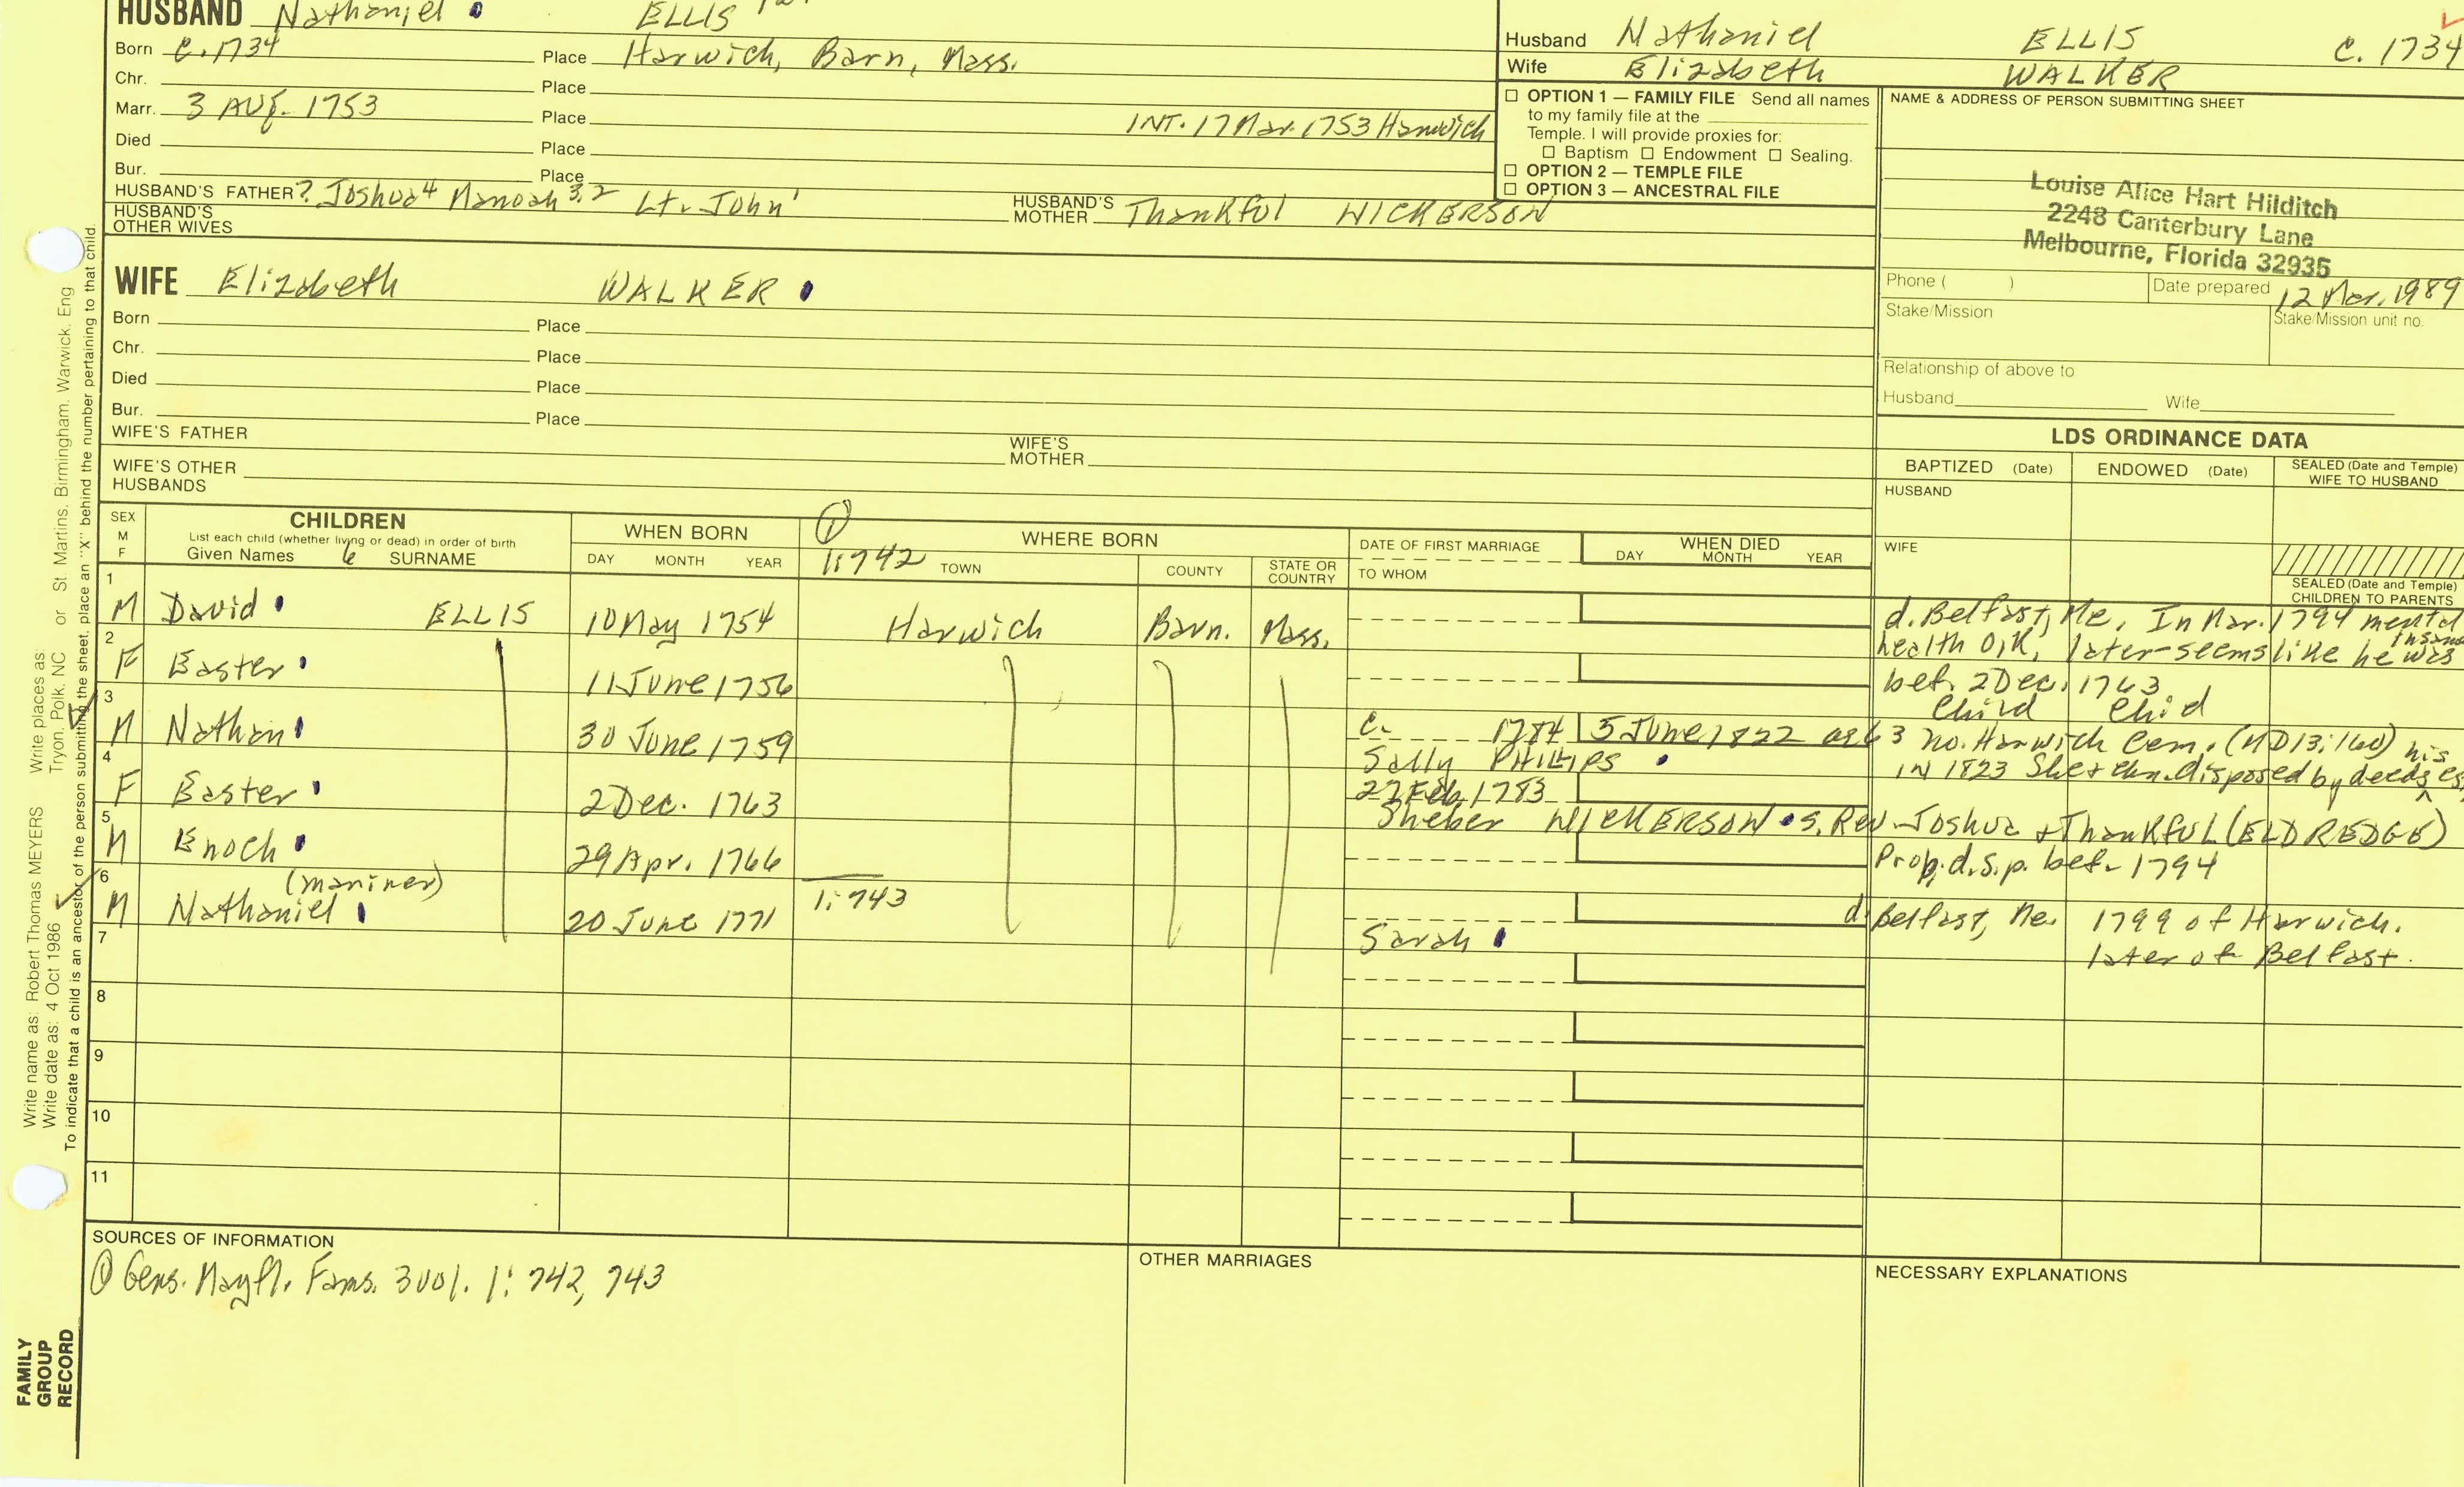 HUSBAND Nathaniel ELLIS
Born c. 1734 Place Harwich, Barn, Mass.
Chr. Place
Marr. 3 Aug. 1753 Place INT. 17 Mar. 1753 Harwich
Died Place
Bur. Place
HUSBAND'S FATHER ? Joshua4 Manoah 3,2 Lt. John1 HUSBAND'S MOTHER Thankful NICKERSON
HUSBAND'S OTHER WIVES
Husband Nathaniel ELLIS c. 1734
Wife Elizabeth WALKER
☐ OPTION 1 — FAMILY FILE Send all names
to my family file at the
Temple. I will provide proxies for:
☐ Baptism ☐ Endowment ☐ Sealing.
☐ OPTION 2 — TEMPLE FILE
☐ OPTION 3 — ANCESTRAL FILE
NAME & ADDRESS OF PERSON SUBMITTING SHEET
Louise Alice Hart Hilditch
2248 Canterbury Lane
Melbourne, Florida 32935
Phone ( ) Date prepared 12 Mar. 1989
Stake/Mission Stake/Mission unit no.
Relationship of above to
Husband Wife
WIFE Elizabeth WALKER
Born Place
Chr. Place
Died Place
Bur. Place
WIFE'S FATHER WIFE'S MOTHER
WIFE'S OTHER HUSBANDS
LDS ORDINANCE DATA
BAPTIZED (Date) ENDOWED (Date) SEALED (Date and Temple) WIFE TO HUSBAND
HUSBAND
WIFE
SEALED (Date and Temple) CHILDREN TO PARENTS
SEX M F
CHILDREN
List each child (whether living or dead) in order of birth
Given Names 6 SURNAME
WHEN BORN
DAY MONTH YEAR
① 1:742
WHERE BORN
TOWN COUNTY STATE OR COUNTRY
DATE OF FIRST MARRIAGE
TO WHOM
WHEN DIED
DAY MONTH YEAR
1 M David ELLIS 10 May 1754 Harwich Barn. Mass. d. Belfast, Me. In Mar. 1794 mental
health O.K, later-seems like he was insane
2 F Easter 11 June 1756 bef. 2 Dec. 1763
Child Child
3 M Nathan 30 June 1759 c. 1784 5 June 1822 ae 63 no. Harwich Cem. (MD13:160) his
Sally PHILLIPS in 1823 She & chn. disposed by deeds
4 F Easter 2 Dec. 1763 27 Feb. 1783
Sheber NICKERSON s. Rev. Joshua & Thankful (ELDREDGE)
5 M Enoch 29 Apr. 1766 Prob. d.s.p. bef. 1794
6 M Nathaniel (mariner) 20 June 1771 1:743 d. Belfast, Me. 1799 of Harwich.
Sarah later of Belfast.
7
8
9
10
11
SOURCES OF INFORMATION
① Gens. Mayfl. Fams. 3 vol. 1: 742, 743
OTHER MARRIAGES
NECESSARY EXPLANATIONS
Write name as: Robert Thomas MEYERS Write places as Tryon, Polk, NC or St Martins, Birmingham, Warwick, Eng
Write date as: 4 Oct 1986
To indicate that a child is an ancestor of the person submitting the sheet, place an "X" behind the number pertaining to that child.
FAMILY
GROUP
RECORD